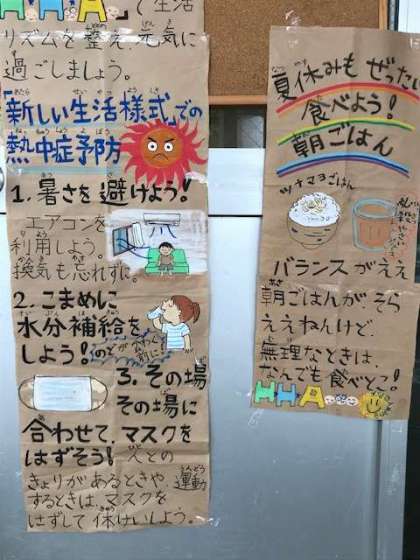 HHA で生活
リズムを整え、元気に
過ごしましょう。
「新しい生活様式」での
熱中症予防
1. 暑さを避けよう!
エアコンを
利用しよう。
換気も忘れずに。
2. こまめに
水分補給を
しよう!
のどが乾く
前に!
3. その場
その場に
合わせて、マスクを
はずそう! 人との
きょりがあるときや 運動
するときは、マスクを
はずして休けいしよう。
夏休みも ぜったい
食べよう!
朝ごはん
ツナマヨごはん
バランスがええ
朝ごはんが、そら
ええねんけど、
無理なときは、
なんでも食べとこ!
HHA